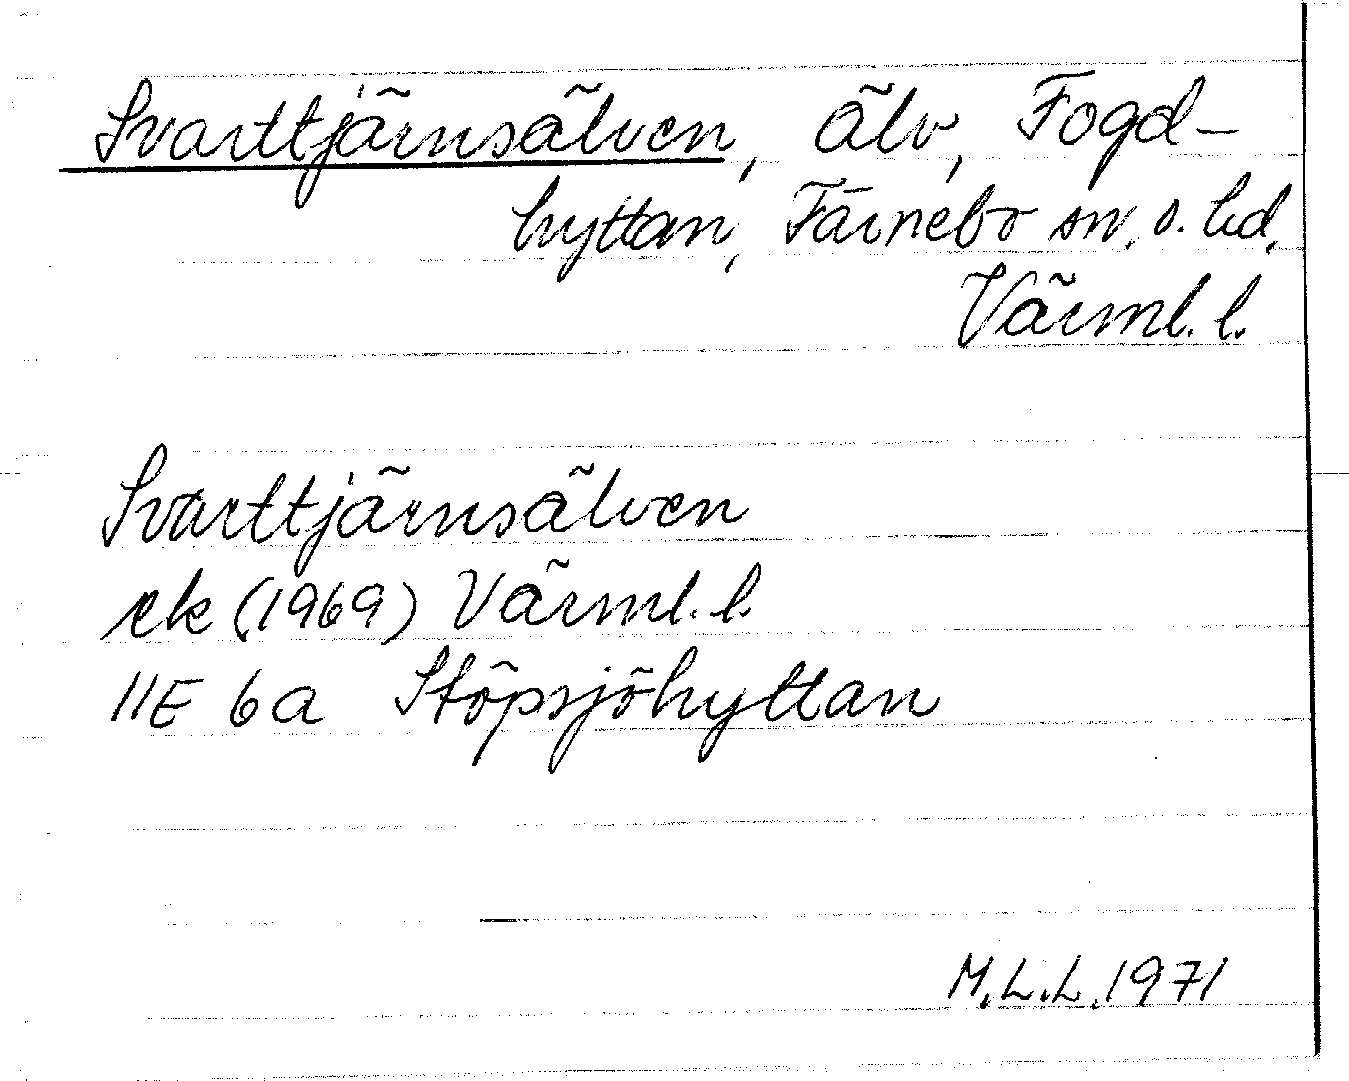 Svarttjärnsälven, älv, Fogd-
hyttan, Färnebo sn, s. hd,
Värml. l.
Svarttjärnsälven
ek (1969) Värml. l.
11E 6a Stöpsjöhyttan
M.L.L. 1971